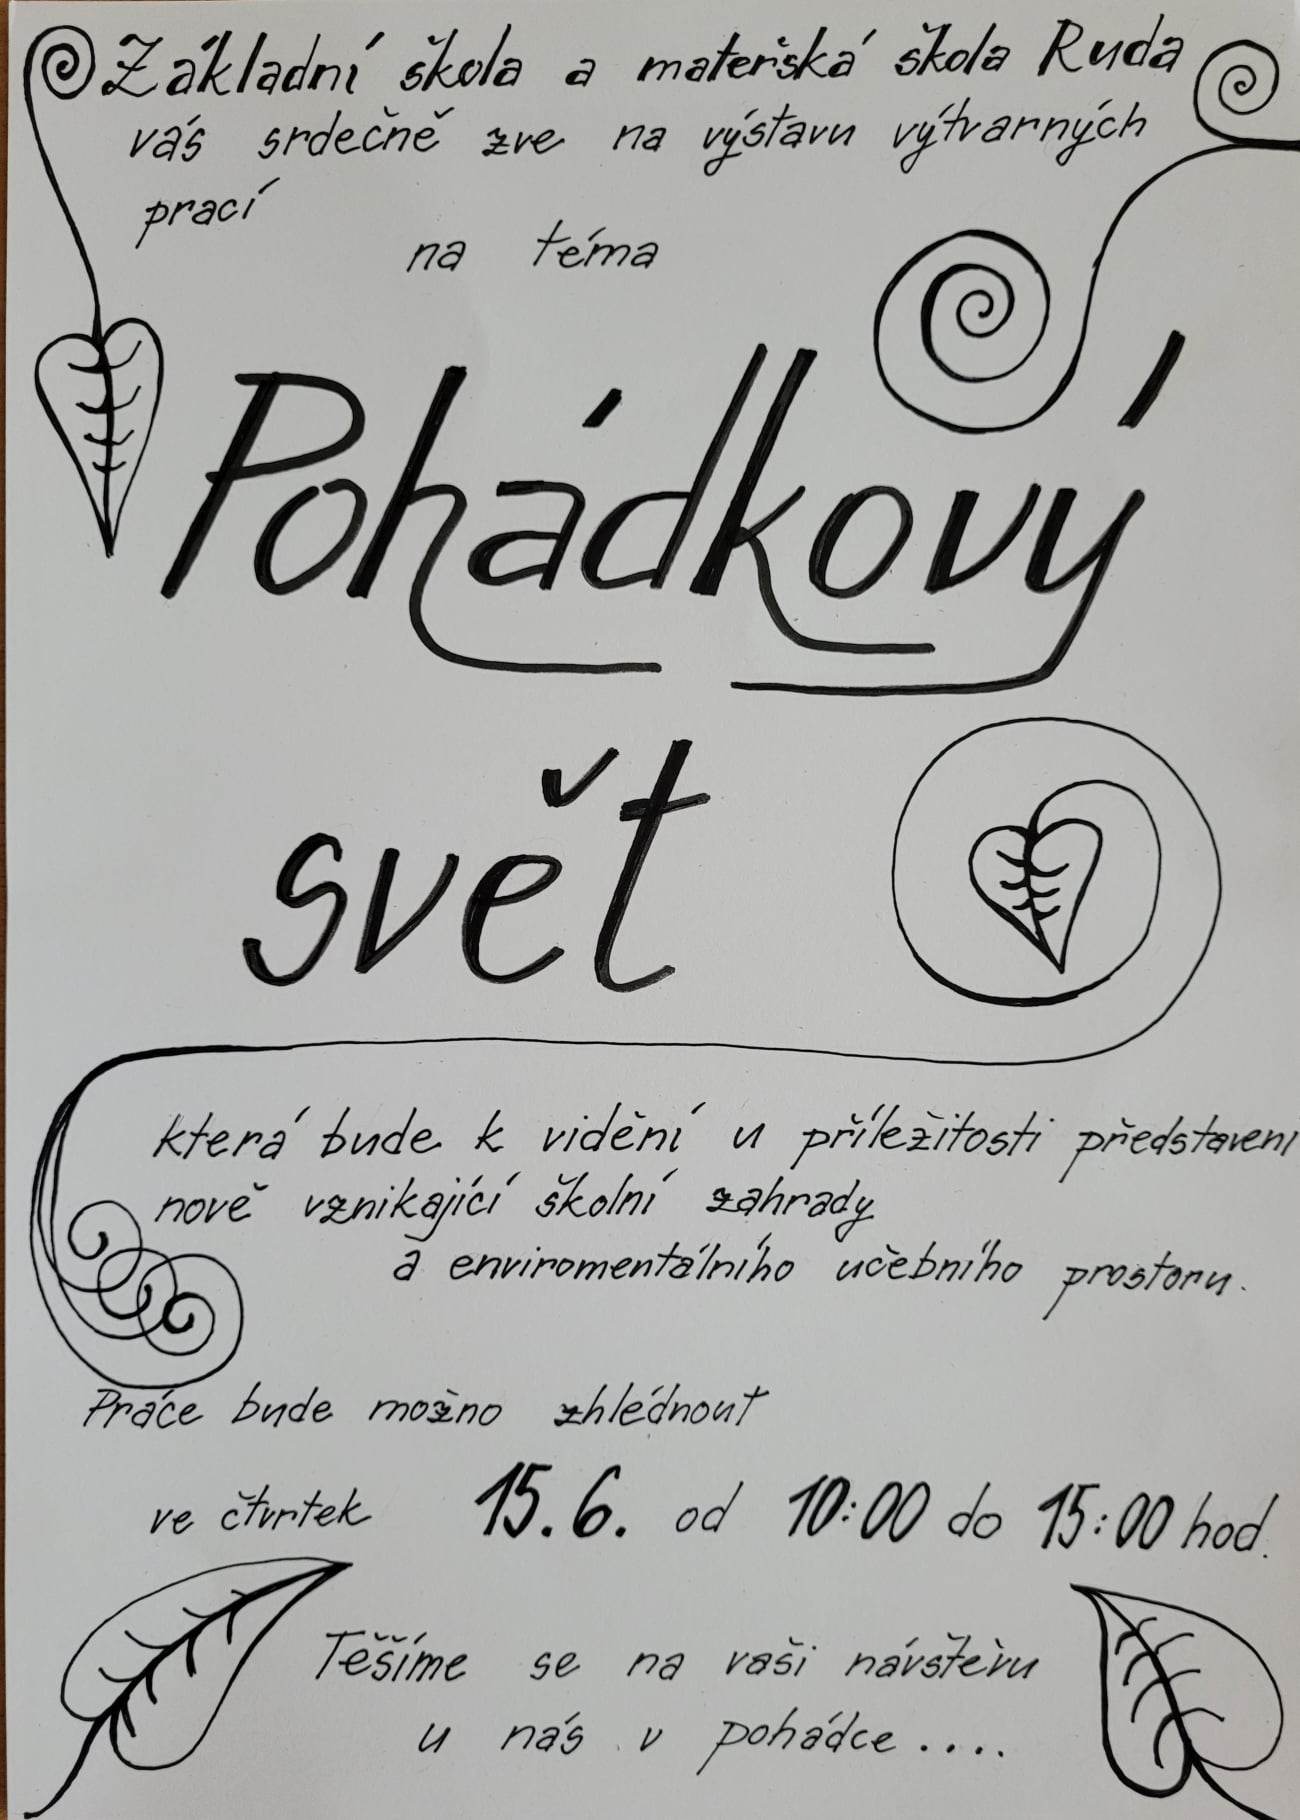 Základní škola a mateřská škola Ruda
vás srdečně zve na výstavu výtvarných
prací
na téma
Pohádkový
svět
která bude k vidění u příležitosti představení
nově vznikající školní zahrady
a enviromentálního učebního prostoru.
Práce bude možno zhlédnout
ve čtvrtek 15.6. od 10:00 do 15:00 hod.
Těšíme se na vaši návštěvu
u nás v pohádce....